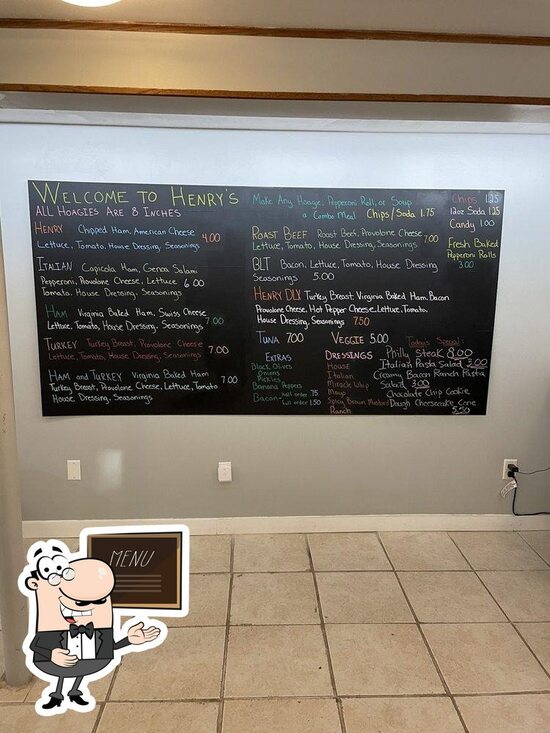 WELCOME TO HENRY'S
ALL HOAGIES ARE 8 INCHES
HENRY Chipped Ham, American Cheese
Lettuce, Tomato, House Dressing, Seasonings 4.00
ITALIAN Capicola Ham, Genoa Salami
Pepperoni, Provolone Cheese, Lettuce 6.00
Tomato, House Dressing, Seasonings
HAM Virginia Baked Ham, Swiss Cheese
Lettuce, Tomato, House Dressing, Seasonings 7.00
TURKEY Turkey Breast, Provolone Cheese
Lettuce, Tomato, House Dressing, Seasonings 7.00
HAM AND TURKEY Virginia Baked Ham
Turkey Breast, Provolone Cheese, Lettuce, Tomato 7.00
House Dressing, Seasonings
Make Any Hoagie, Pepperoni Roll, or Soup
a Combo Meal Chips/Soda 1.75
ROAST BEEF Roast Beef, Provolone Cheese
Lettuce, Tomato, House Dressing, Seasonings 7.00
BLT Bacon, Lettuce, Tomato, House Dressing
Seasonings 5.00
HENRY DLX Turkey Breast, Virginia Baked Ham, Bacon
Provolone Cheese, Hot Pepper Cheese, Lettuce, Tomato,
House Dressing, Seasonings 7.50
TUNA 7.00 VEGGIE 5.00
EXTRAS
Black Olives
Onions
Pickles
Banana Peppers
Bacon- half order .75
full order 1.50
DRESSINGS
House
Italian
Miracle Whip
Mayo
Spicy Brown Mustard
Ranch
Today's Special:
Philly Steak 8.00
Italian Pasta Salad 3.00
Creamy Bacon Ranch Pasta
Salad 3.00
Chocolate Chip Cookie
Dough Cheesecake Cone
5.50
Chips 1.25
12oz Soda 1.25
Candy 1.00
Fresh Baked
Pepperoni Rolls
3.00
MENU